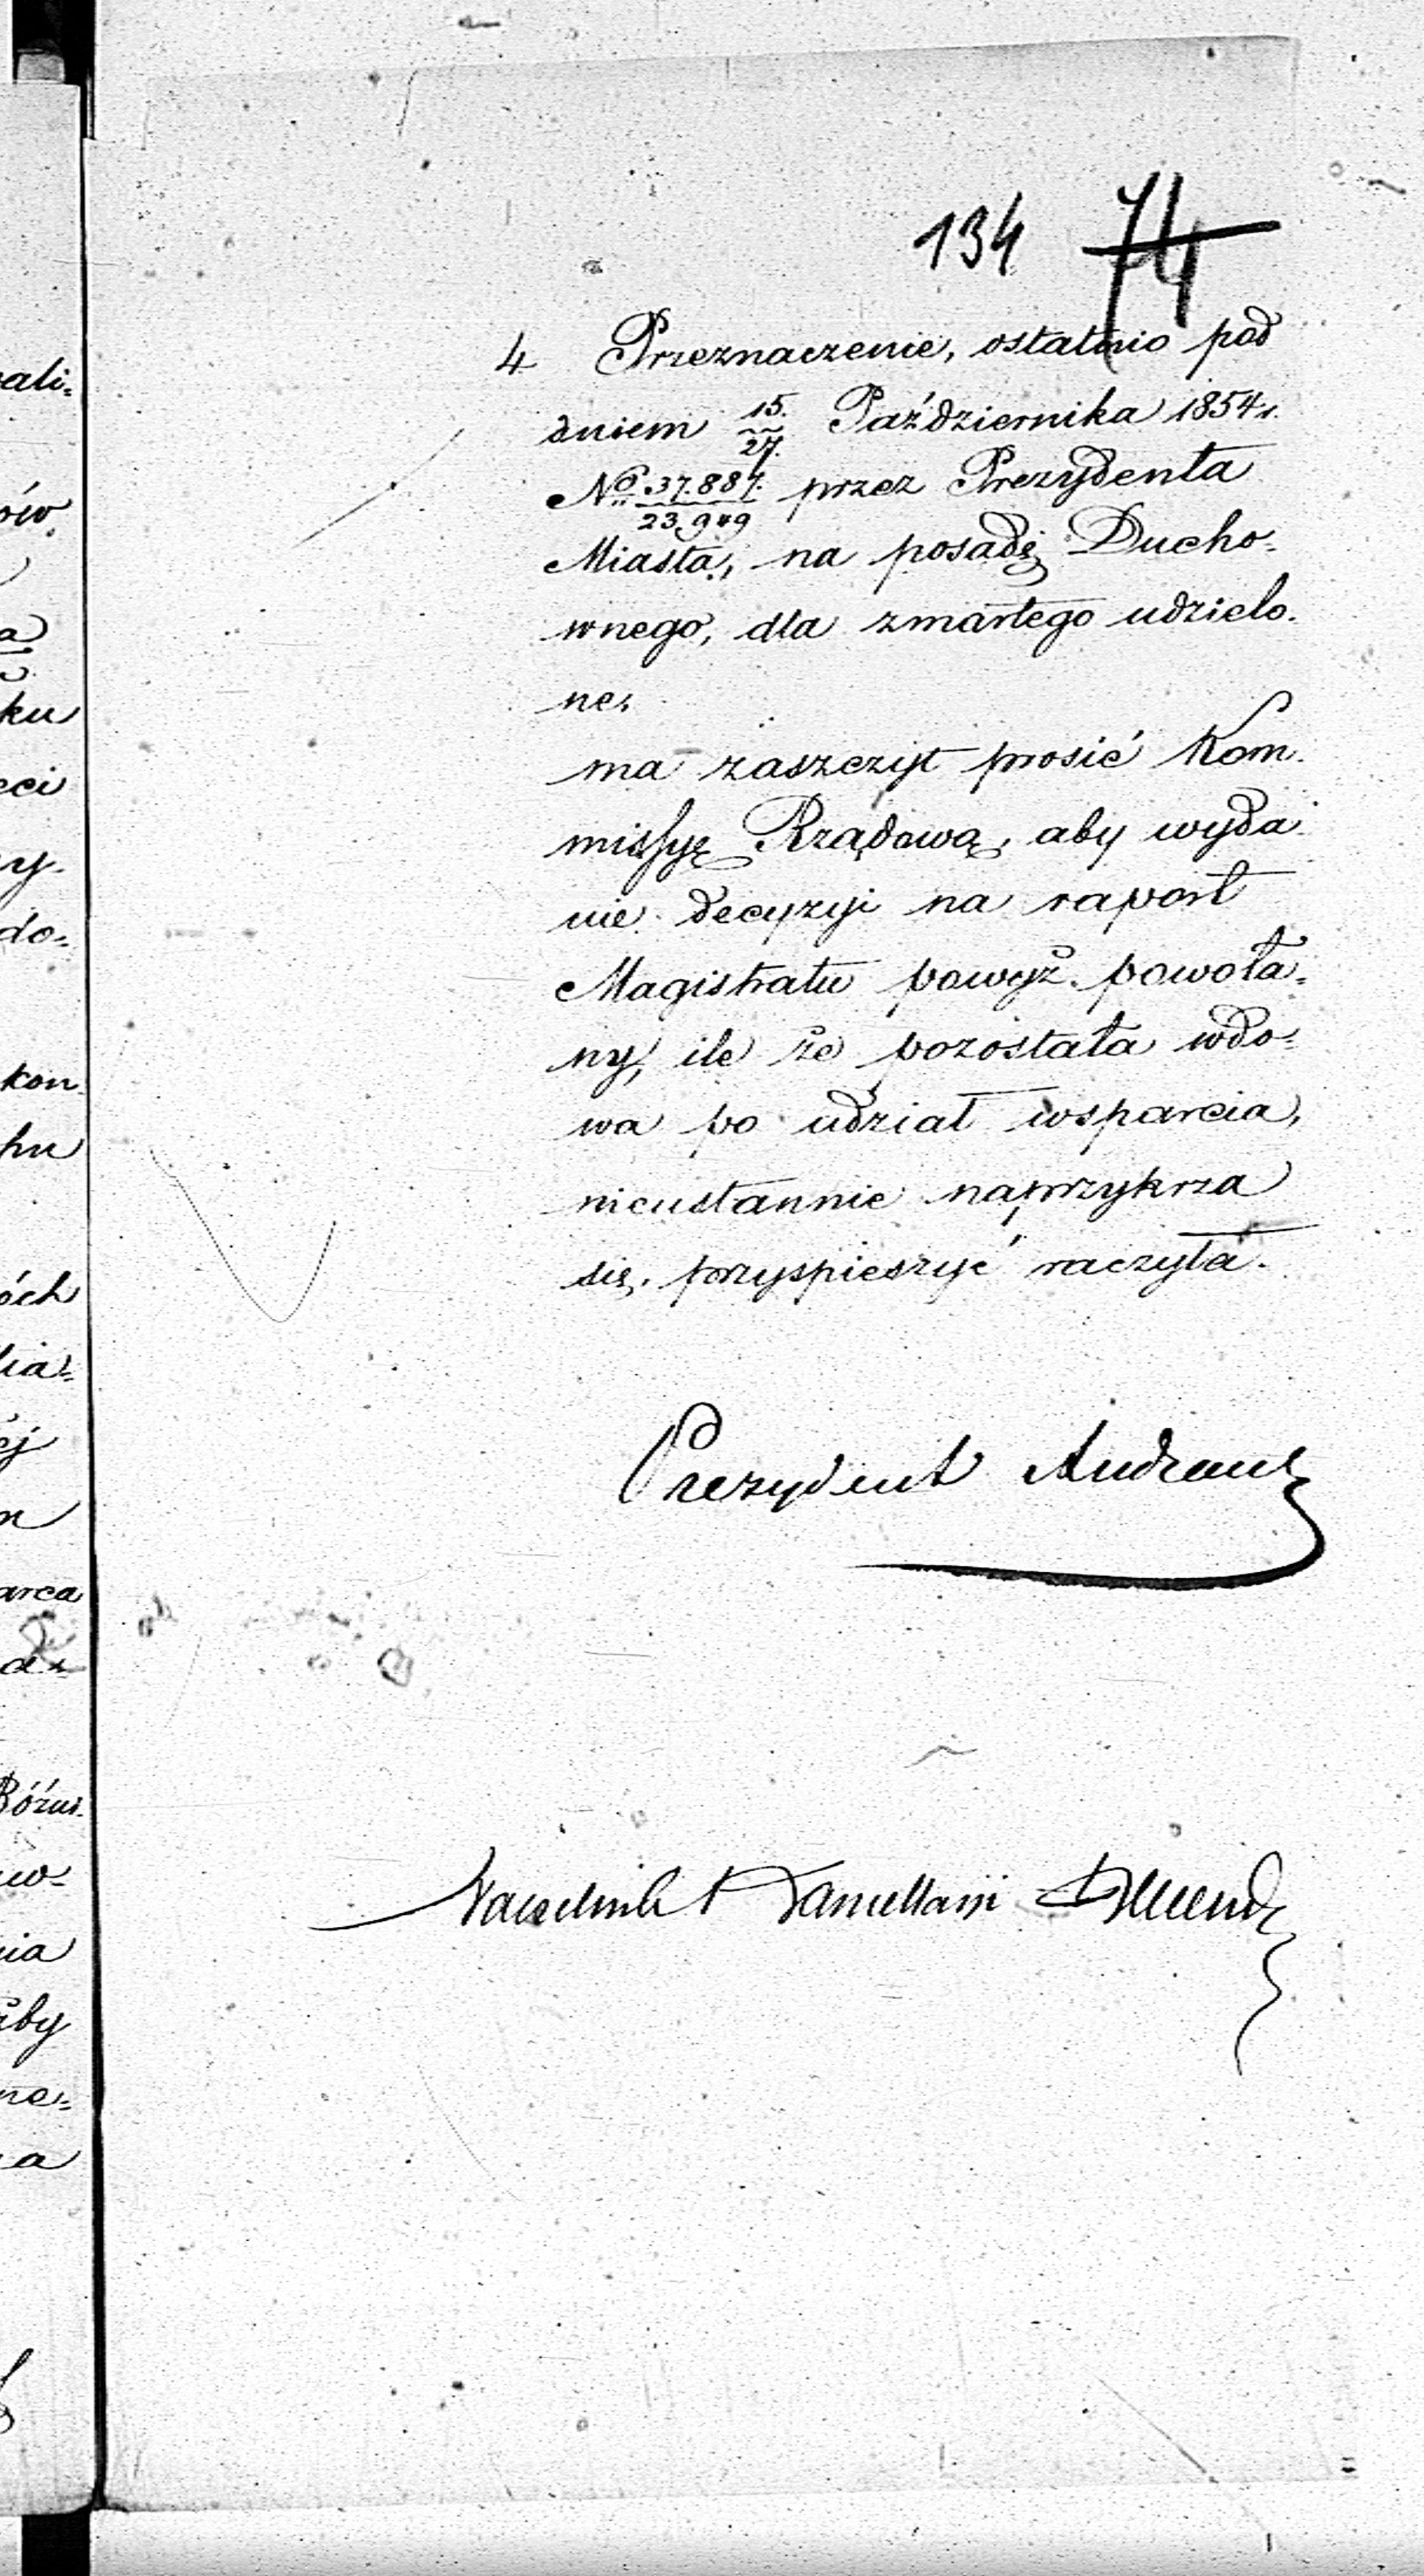 134 74
4 Przeznaczenie, ostatnio pod
dniem 15/27 Października 1854 r.
No 37.887/23,949 przez Prezydenta
Miasta, na posadę Ducho-
wnego, dla zmarłego udzielo-
ne.
ma zaszczyt prosić Kom-
missyę Rządową, aby wyda
nie decyzyi na raport
Magistratu powyż. powoła-
ny, ile że pozostała wdo-
wa po udział wsparcia,
nieustannie naprzykrza
się, przyspieszyć raczyła.
Prezydent
Naczelnik Kancellaryi
ali-
ów
a
ku
eci
y
do-
kon
hu
óch
lia-
ej
arca
Różni
w-
nia
aby
ne-
a